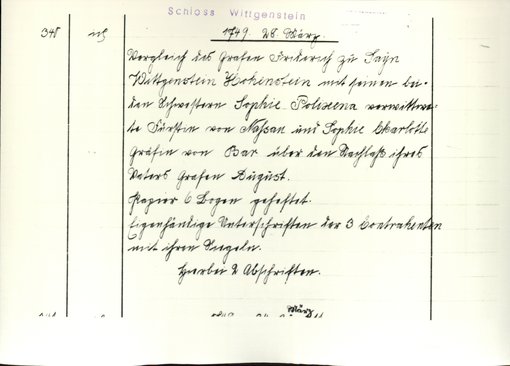 Schloss Wittgenstein
348
1749. 28. März.
Vergleich des Grafen Friderich zu Sayn
Wittgenstein Hohenstein mit seinen bei-
den Schwestern Sophie Polixena verwittwe-
te Fürstin von Nassau und Sophie Charlotte
Gräfin von Bar über den Nachlaß ihres
Vaters Grafen August.
Papier 6 Bogen geheftet.
Eigenhändige Unterschriften der 3 Contrahenten
mit ihren Siegeln.
Hierbei 2 Abschriften.
März